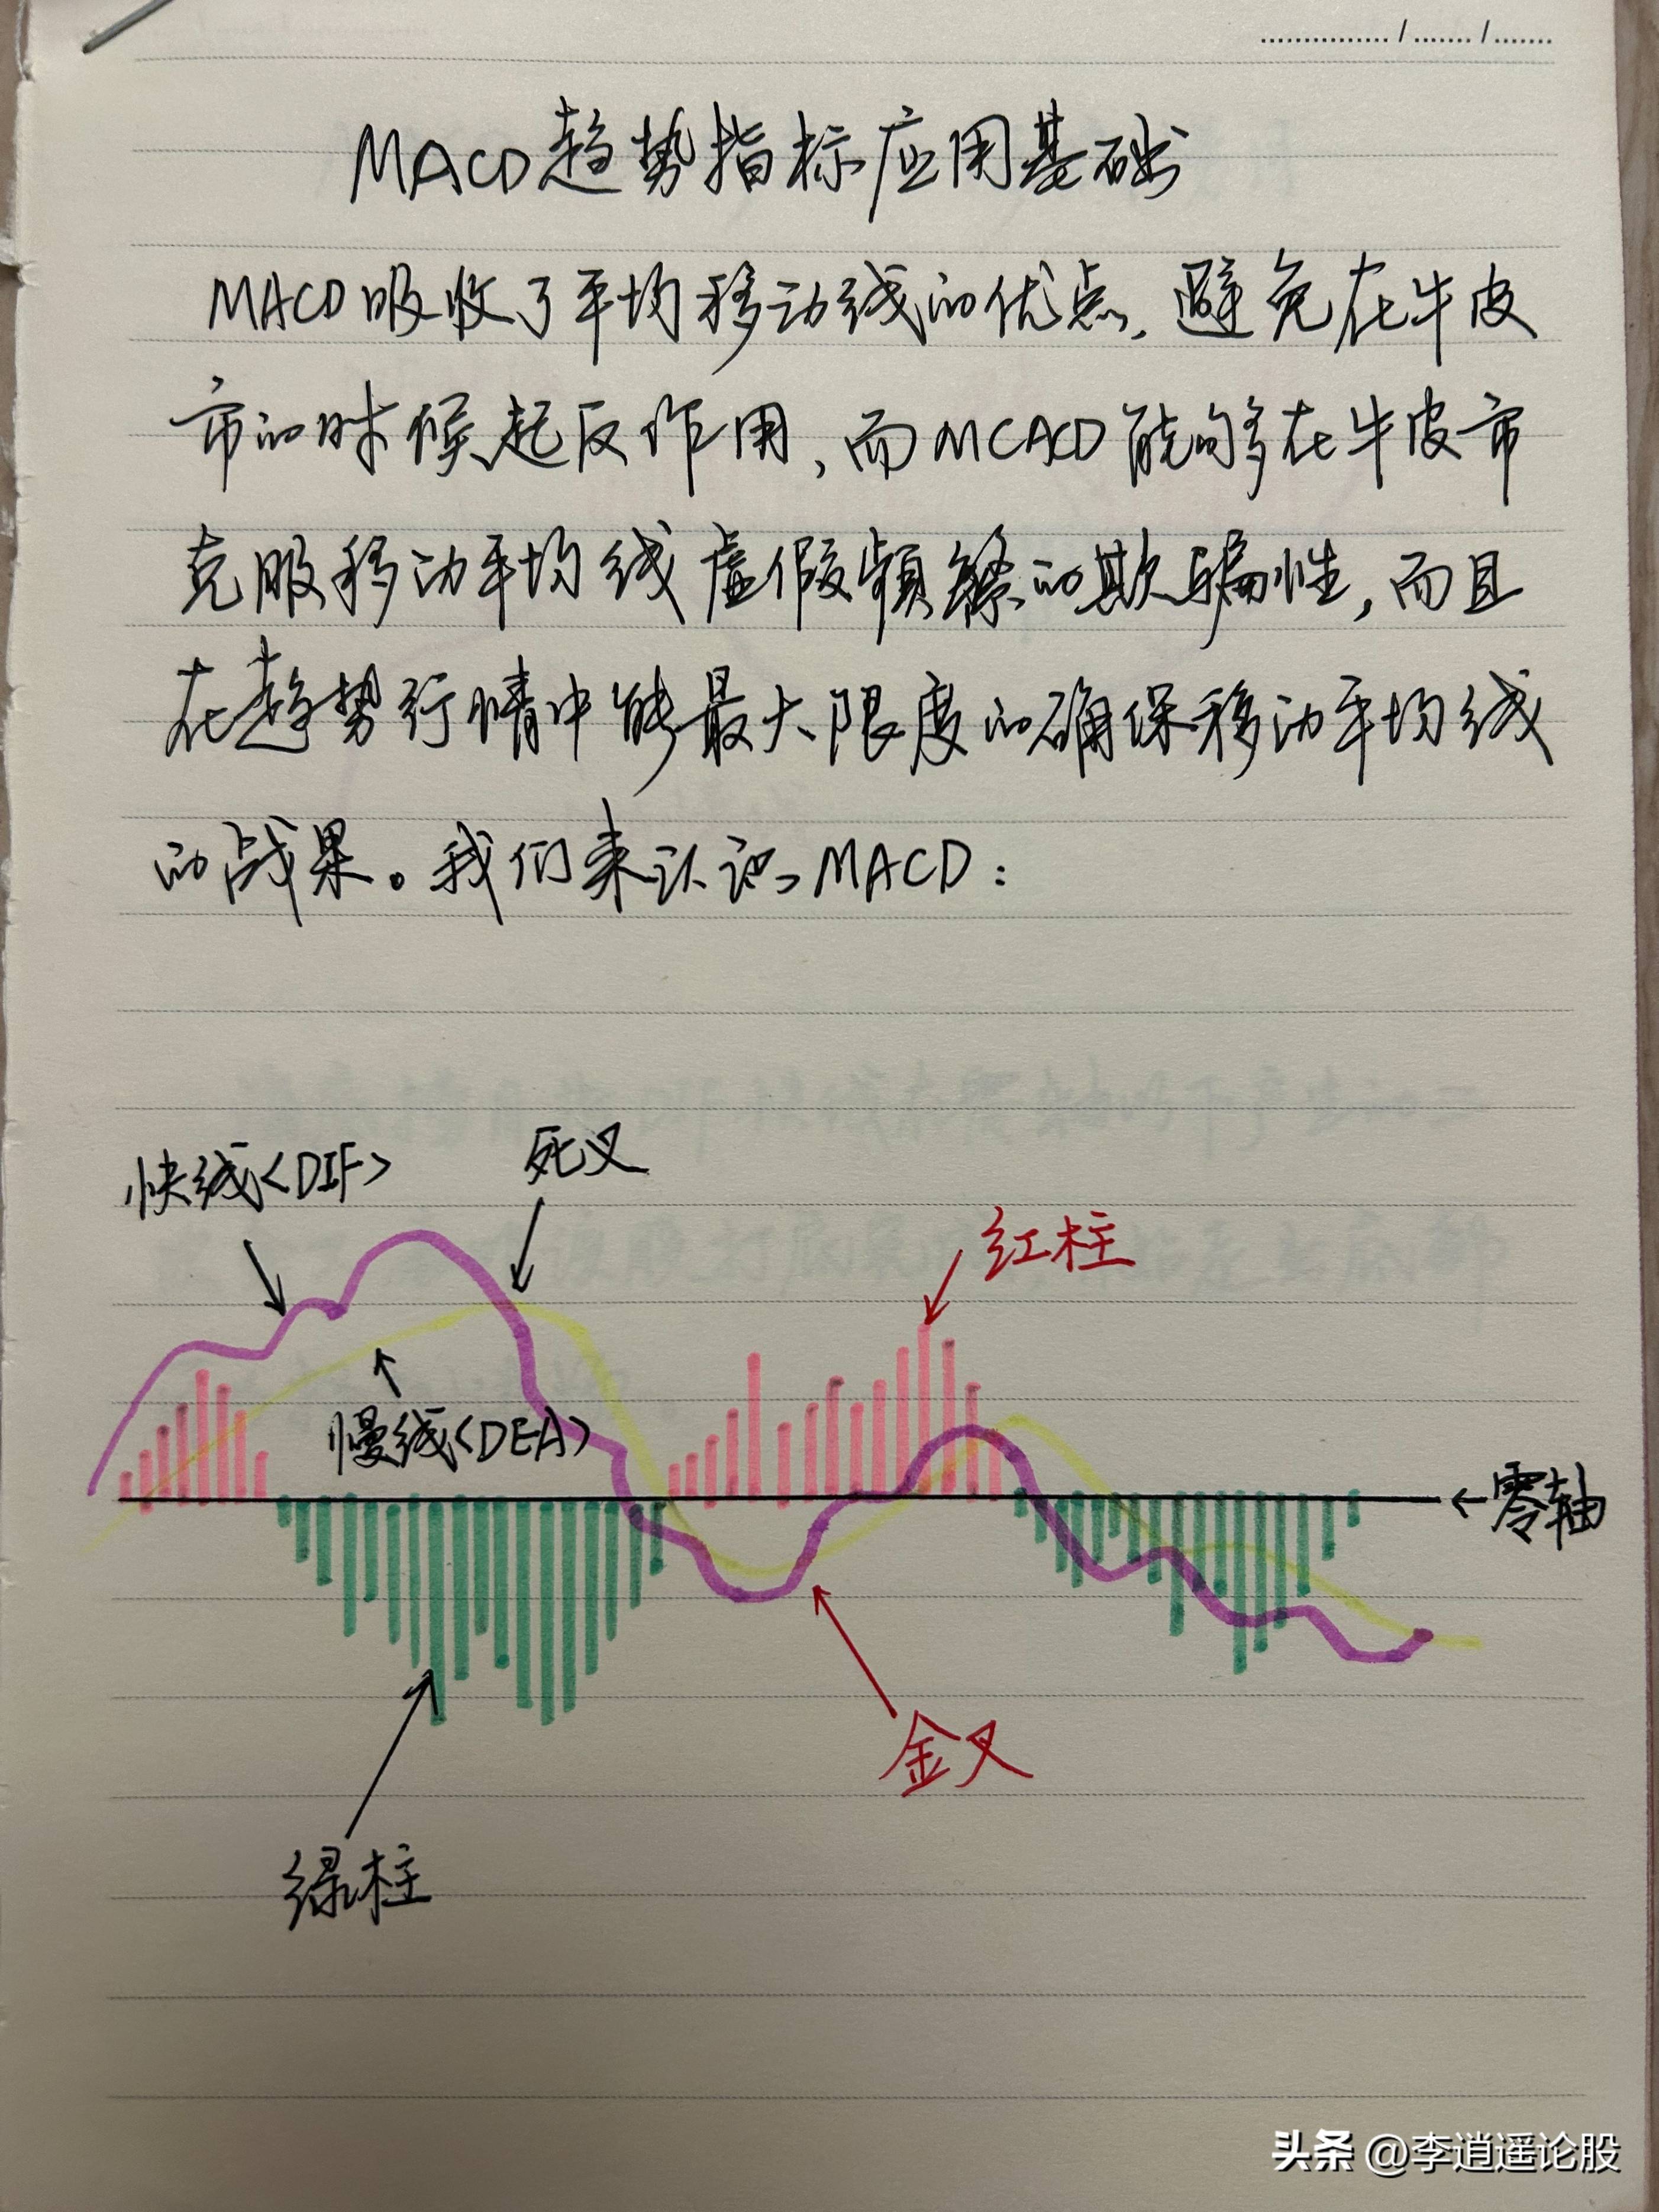 ............... / ....... / .......
MACD趋势指标应用基础
MACD吸收了平均移动线的优点,避免在牛皮
市的时候起反作用,而MCACD能够在牛皮市
克服移动平均线虚假频繁的欺骗性,而且
在趋势行情中能最大限度的确保移动平均线
的战果。我们来认识MACD:
快线<DIF>
死叉
红柱
慢线<DEA>
←零轴
金叉
绿柱
头条 @李逍遥论股